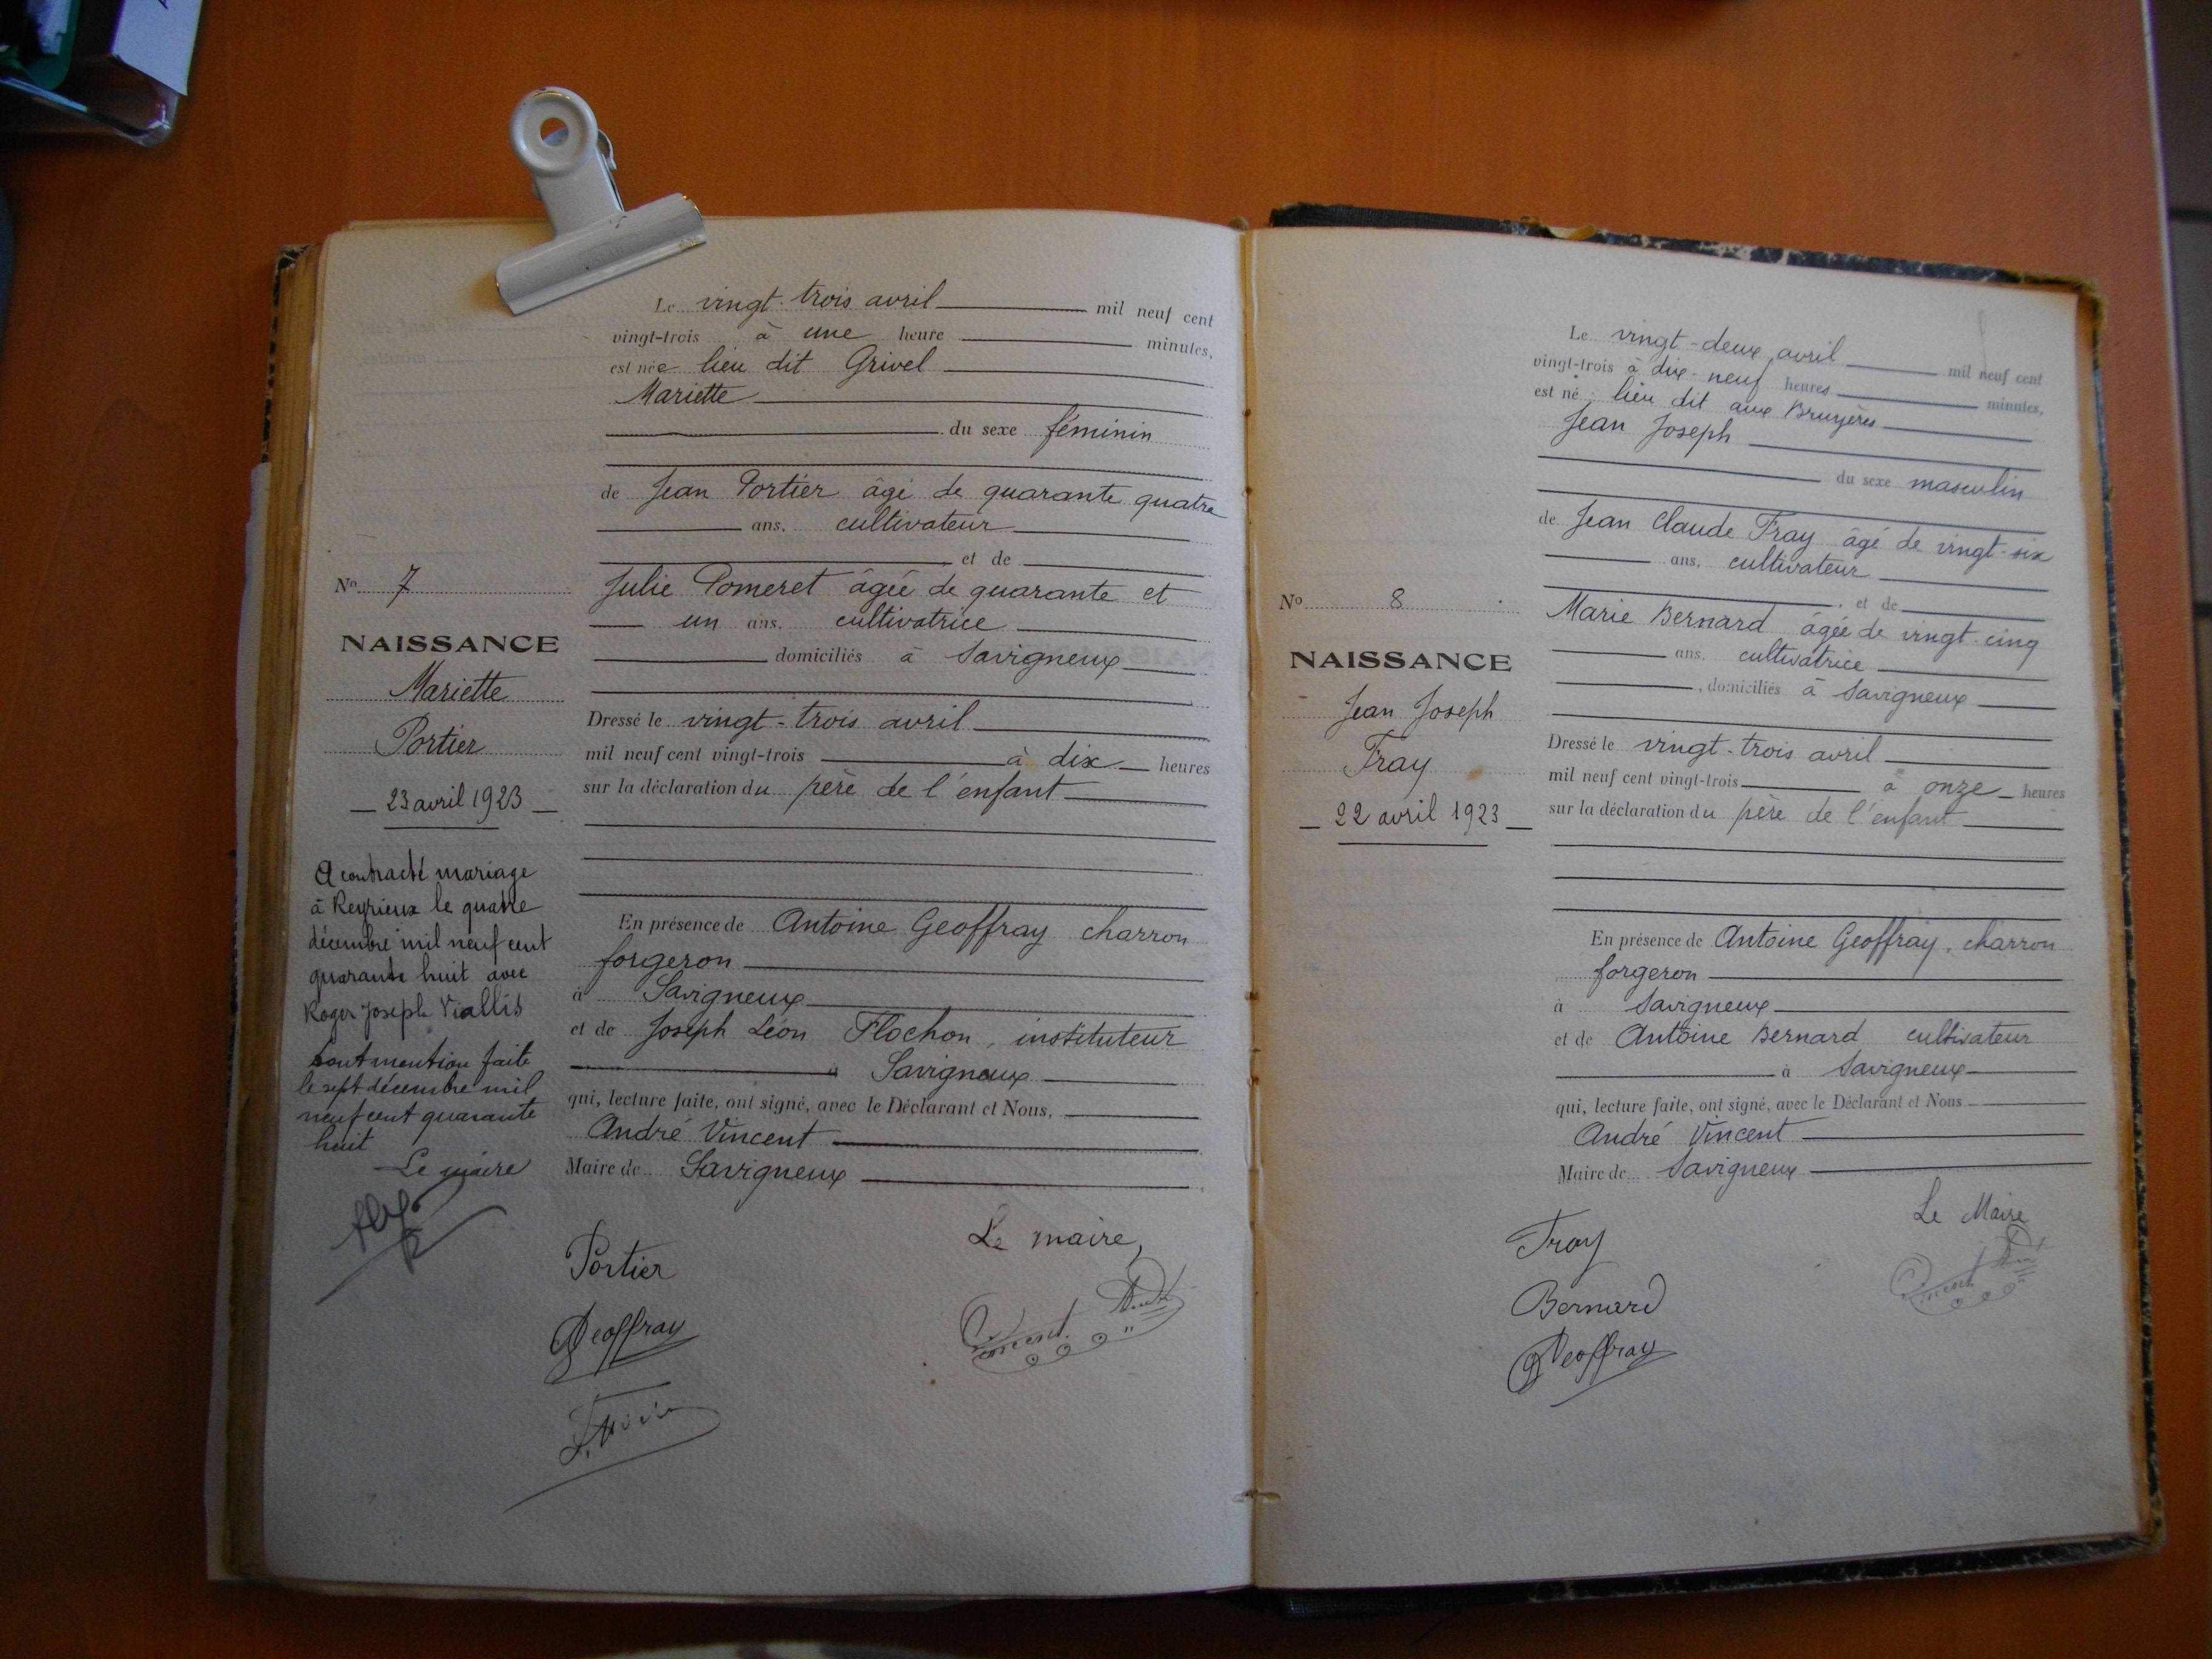 Le vingt-trois avril mil neuf cent
vingt-trois à une heure minutes,
est née lieu dit Grivel
Mariette
du sexe féminin
de Jean Portier âgé de quarante quatre
ans. cultivateur
et de
Julie Pomeret âgée de quarante et
un ans. cultivatrice
domiciliés à Savigneux
Dressé le vingt-trois avril
mil neuf cent vingt-trois à dix heures
sur la déclaration du père de l'enfant
En présence de Antoine Geoffray charron
forgeron
à Savigneux
et de Joseph Léon Flochon, instituteur
à Savigneux
qui, lecture faite, ont signé, avec le Déclarant et Nous,
André Vincent
Maire de Savigneux
Le maire,
Portier
Geoffray
Vincent André
No 7
NAISSANCE
Mariette
Portier
23 avril 1923
A contracté mariage
à Reyrieux le quatre
décembre mil neuf cent
quarante huit avec
Roger Joseph Viallis
Dont mention faite
le sept décembre mil
neuf cent quarante
huit
Le maire
Le vingt-deux avril mil neuf cent
vingt-trois à dix-neuf heures minutes,
est né lieu dit aux Bruyères
Jean Joseph
du sexe masculin
de Jean Claude Fray âgé de vingt-six
ans, cultivateur
et de
Marie Bernard âgée de vingt cinq
ans. cultivatrice
, domiciliés à Savigneux
Dressé le vingt-trois avril
mil neuf cent vingt-trois à onze heures
sur la déclaration du père de l'enfant
En présence de Antoine Geoffray, charron
forgeron
à Savigneux
et de Antoine Bernard cultivateur
à Savigneux
qui, lecture faite, ont signé, avec le Déclarant et Nous
André Vincent
Maire de Savigneux
Le Maire
Fray
Bernard
Geoffray
Vincent André
No 8
NAISSANCE
Jean Joseph
Fray
22 avril 1923